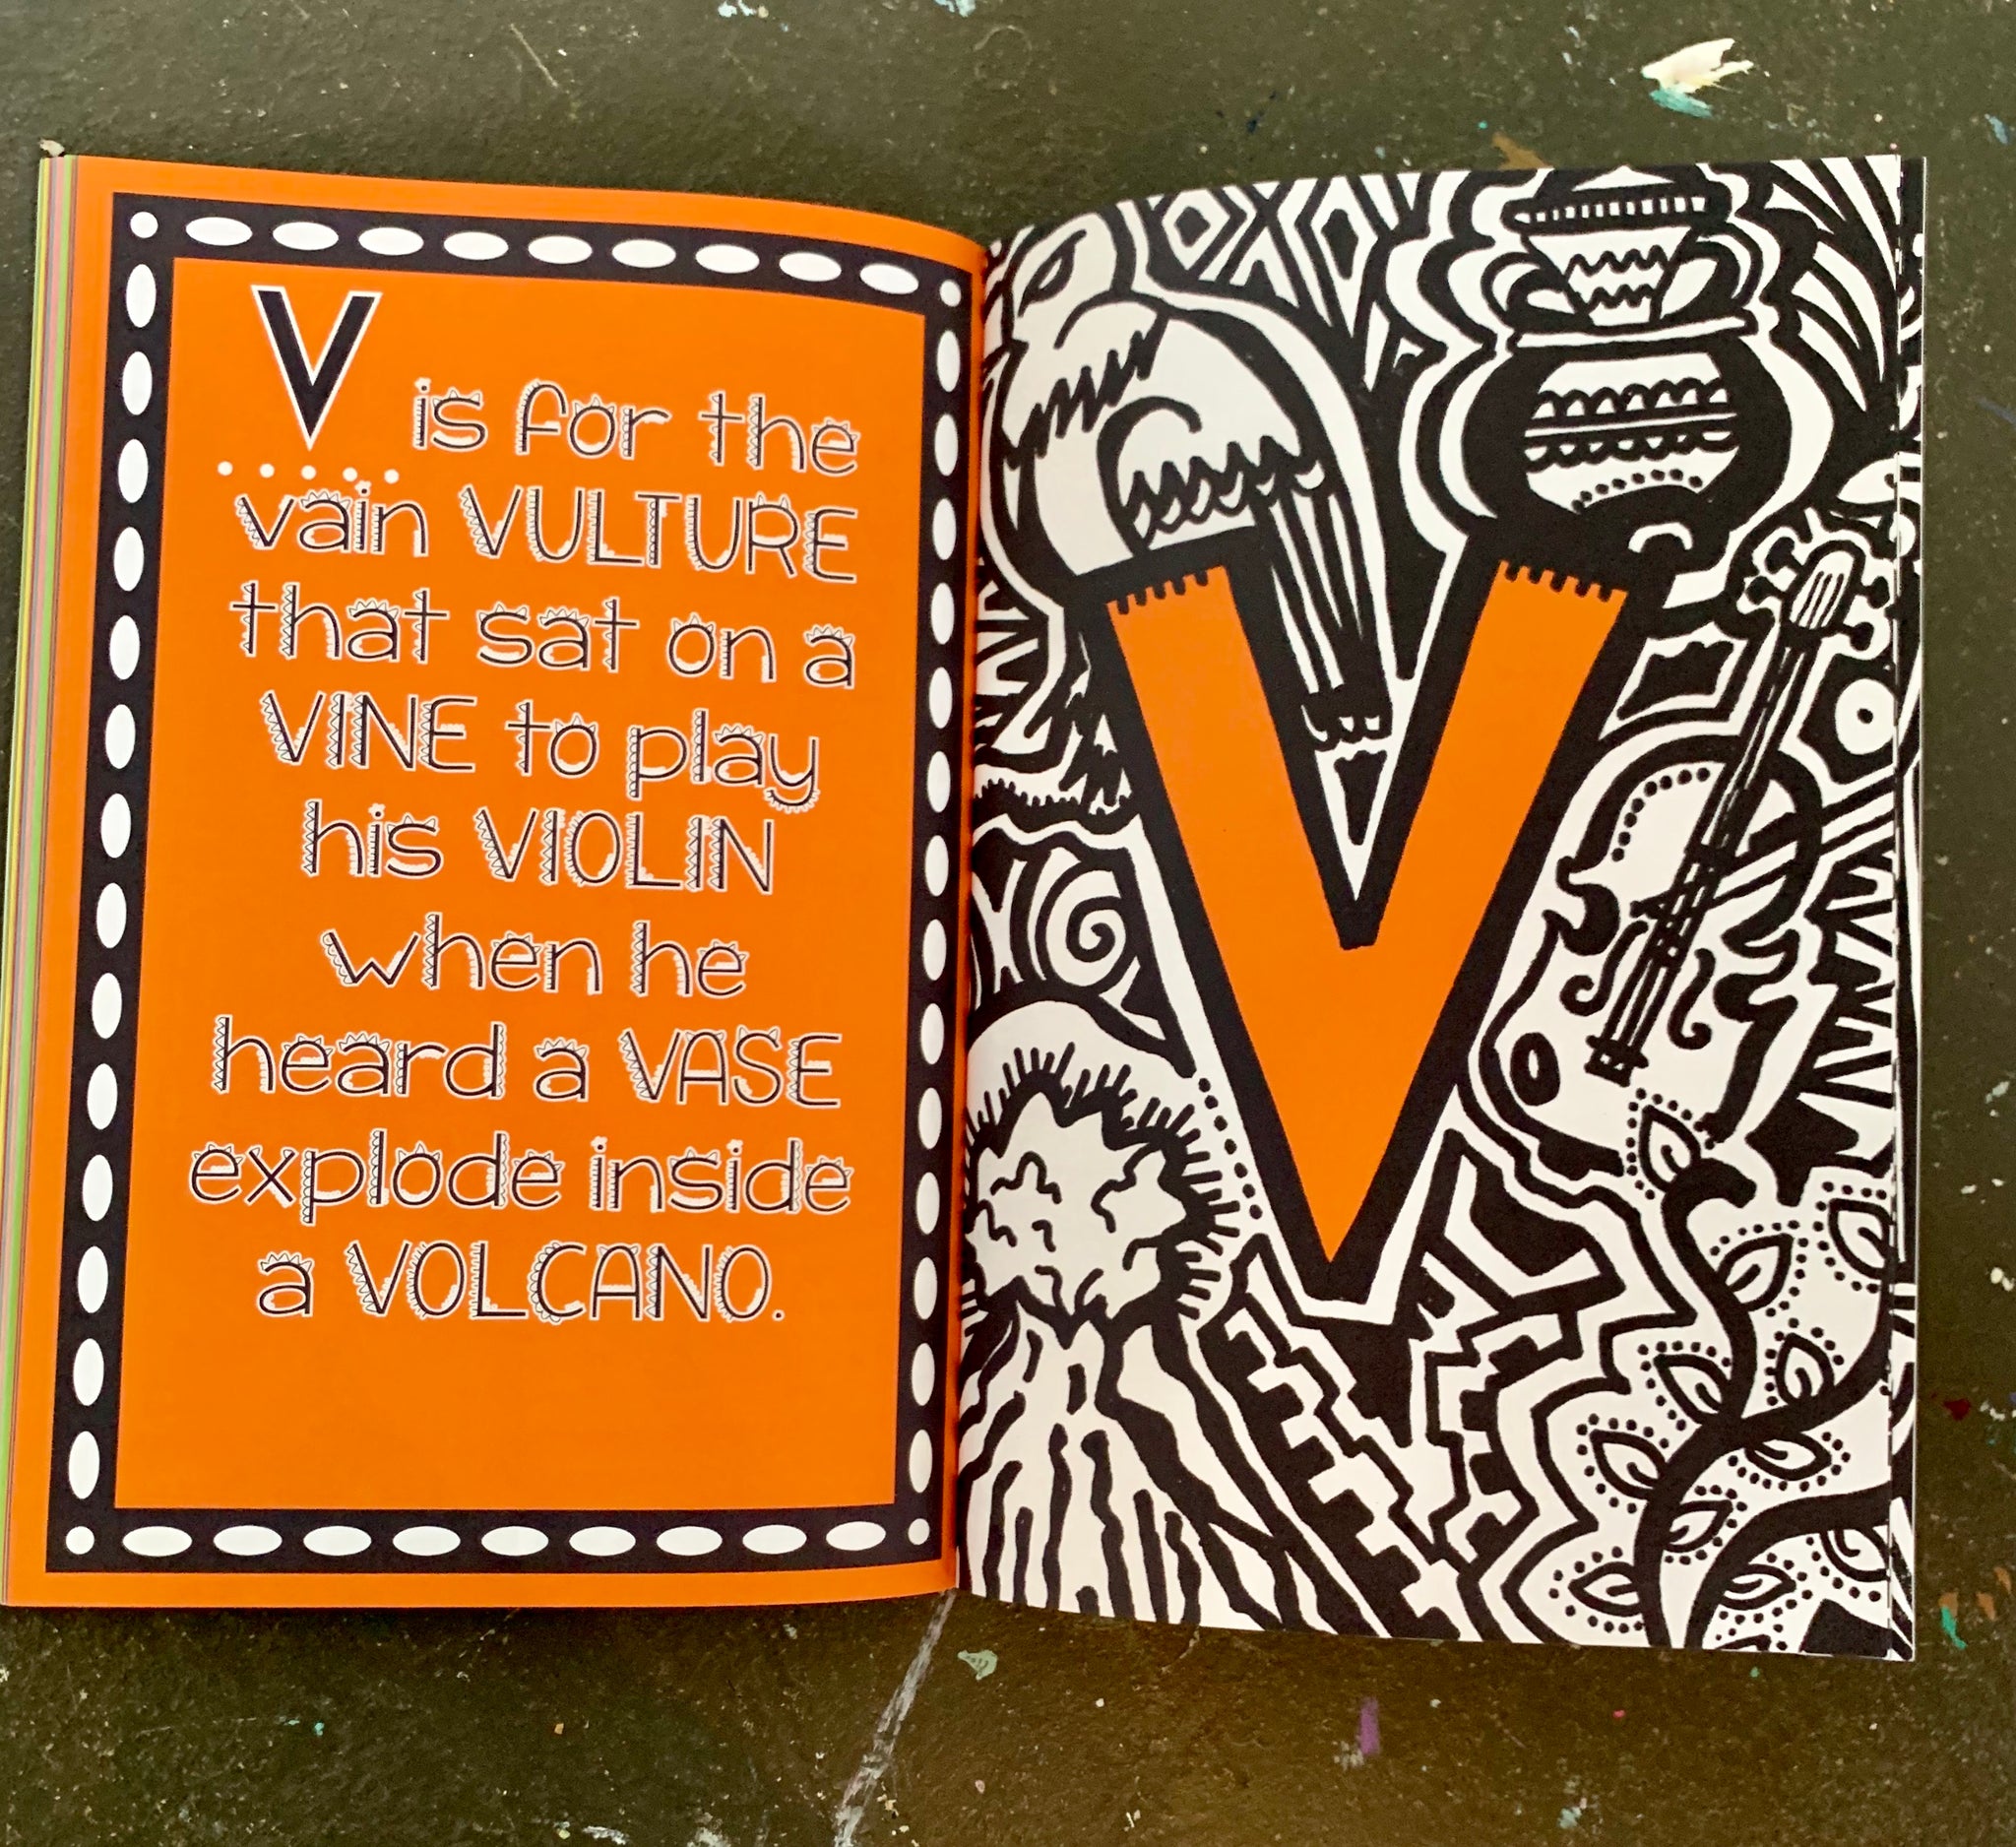 V is for the
vain VULTURE
that sat on a
VINE to play
his VIOLIN
when he
heard a VASE
explode inside
a VOLCANO.
V